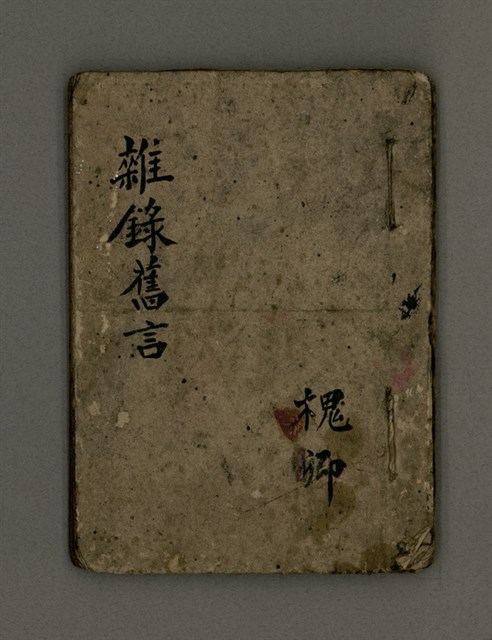 雜錄舊言
槐卿